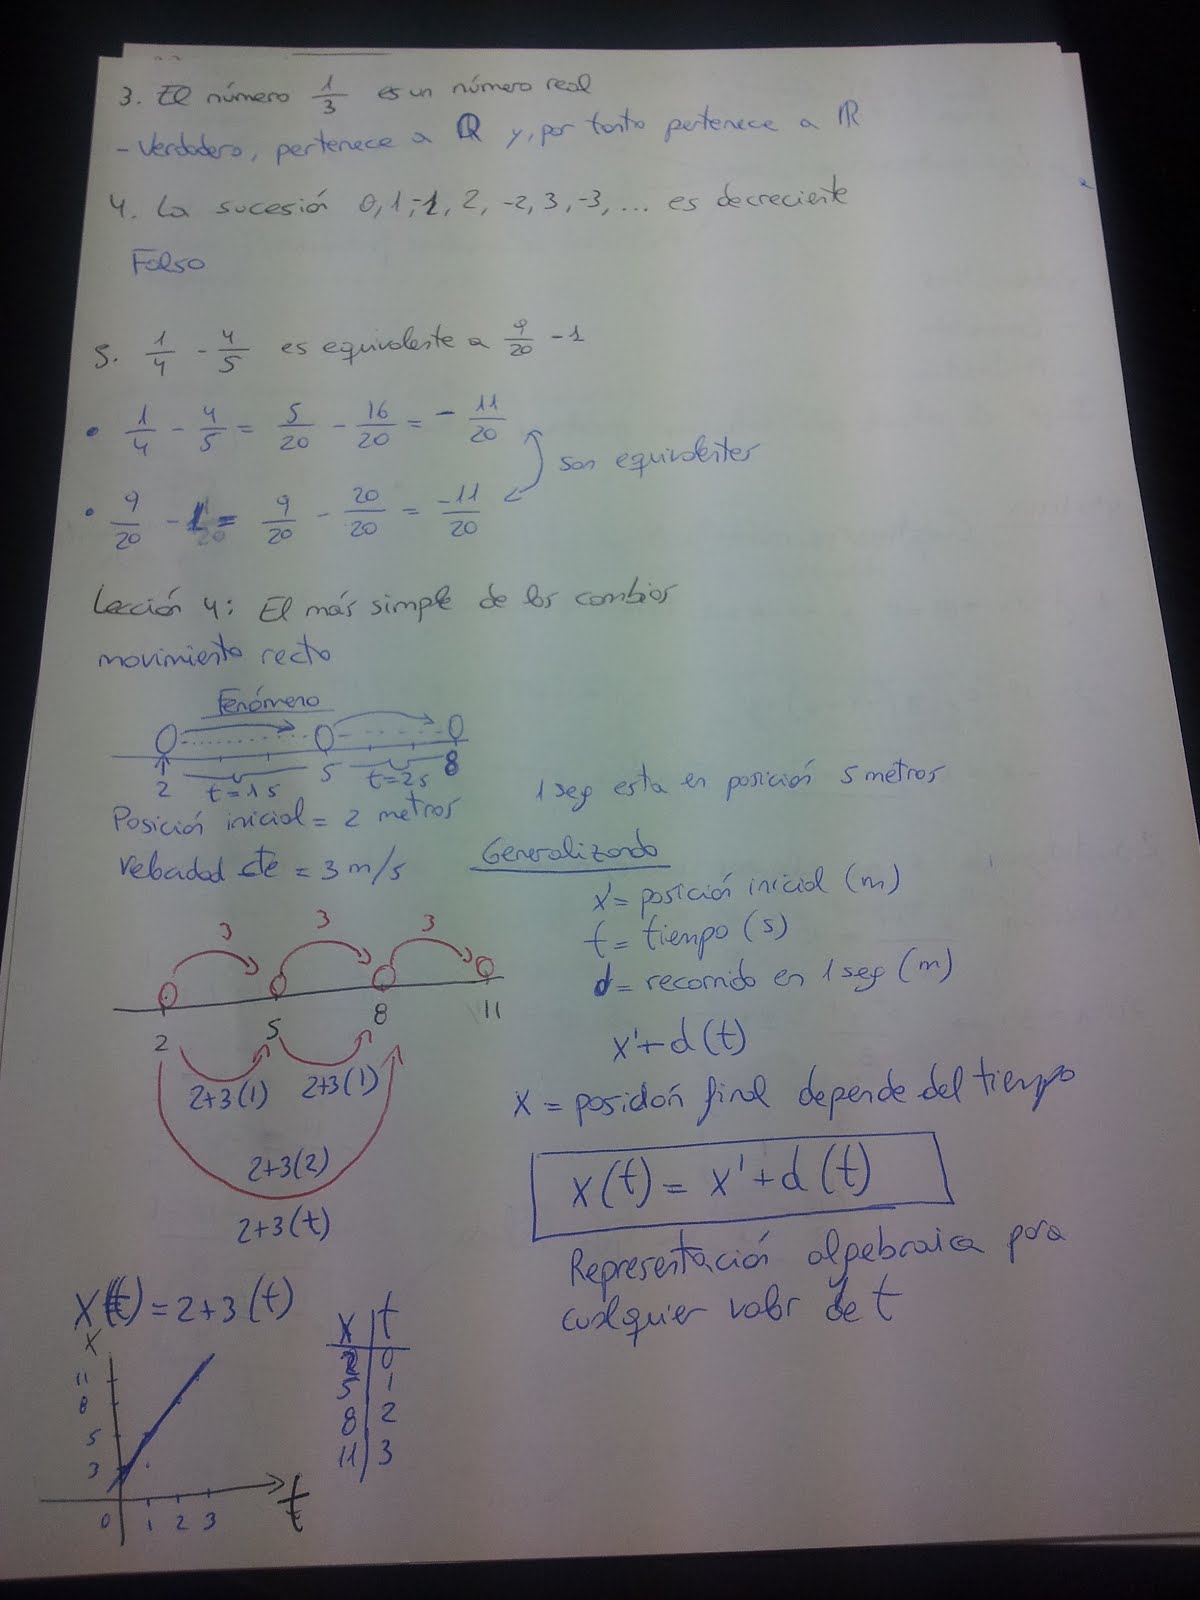 3. El número 1/3 es un número real
- Verdadero, pertenece a ℚ y, por tanto pertenece a ℝ
4. La sucesión 0, 1, -1, 2, -2, 3, -3, ... es decreciente
Falso
5. 1/4 - 4/5 es equivalente a 9/20 - 1
• 1/4 - 4/5 = 5/20 - 16/20 = - 11/20
son equivalentes
• 9/20 - 1 = 9/20 - 20/20 = -11/20
Lección 4: El más simple de los cambios
movimiento recto
Fenómeno
2 t=1s 5 t=2s 8
1 seg esta en posición 5 metros
Posición inicial = 2 metros
velocidad cte = 3 m/s
Generalizando
x' = posición inicial (m)
t = tiempo (s)
d = recorrido en 1 seg (m)
x' + d (t)
x = posición final depende del tiempo
x(t) = x' + d (t)
Representación algebraica para
cualquier valor de t
3 3 3
2 5 8 11
2+3(1) 2+3(1)
2+3(2)
2+3(t)
x(t) = 2+3 (t)
x t
2 0
5 1
8 2
11 3
x
11
8
5
3
0 1 2 3 t